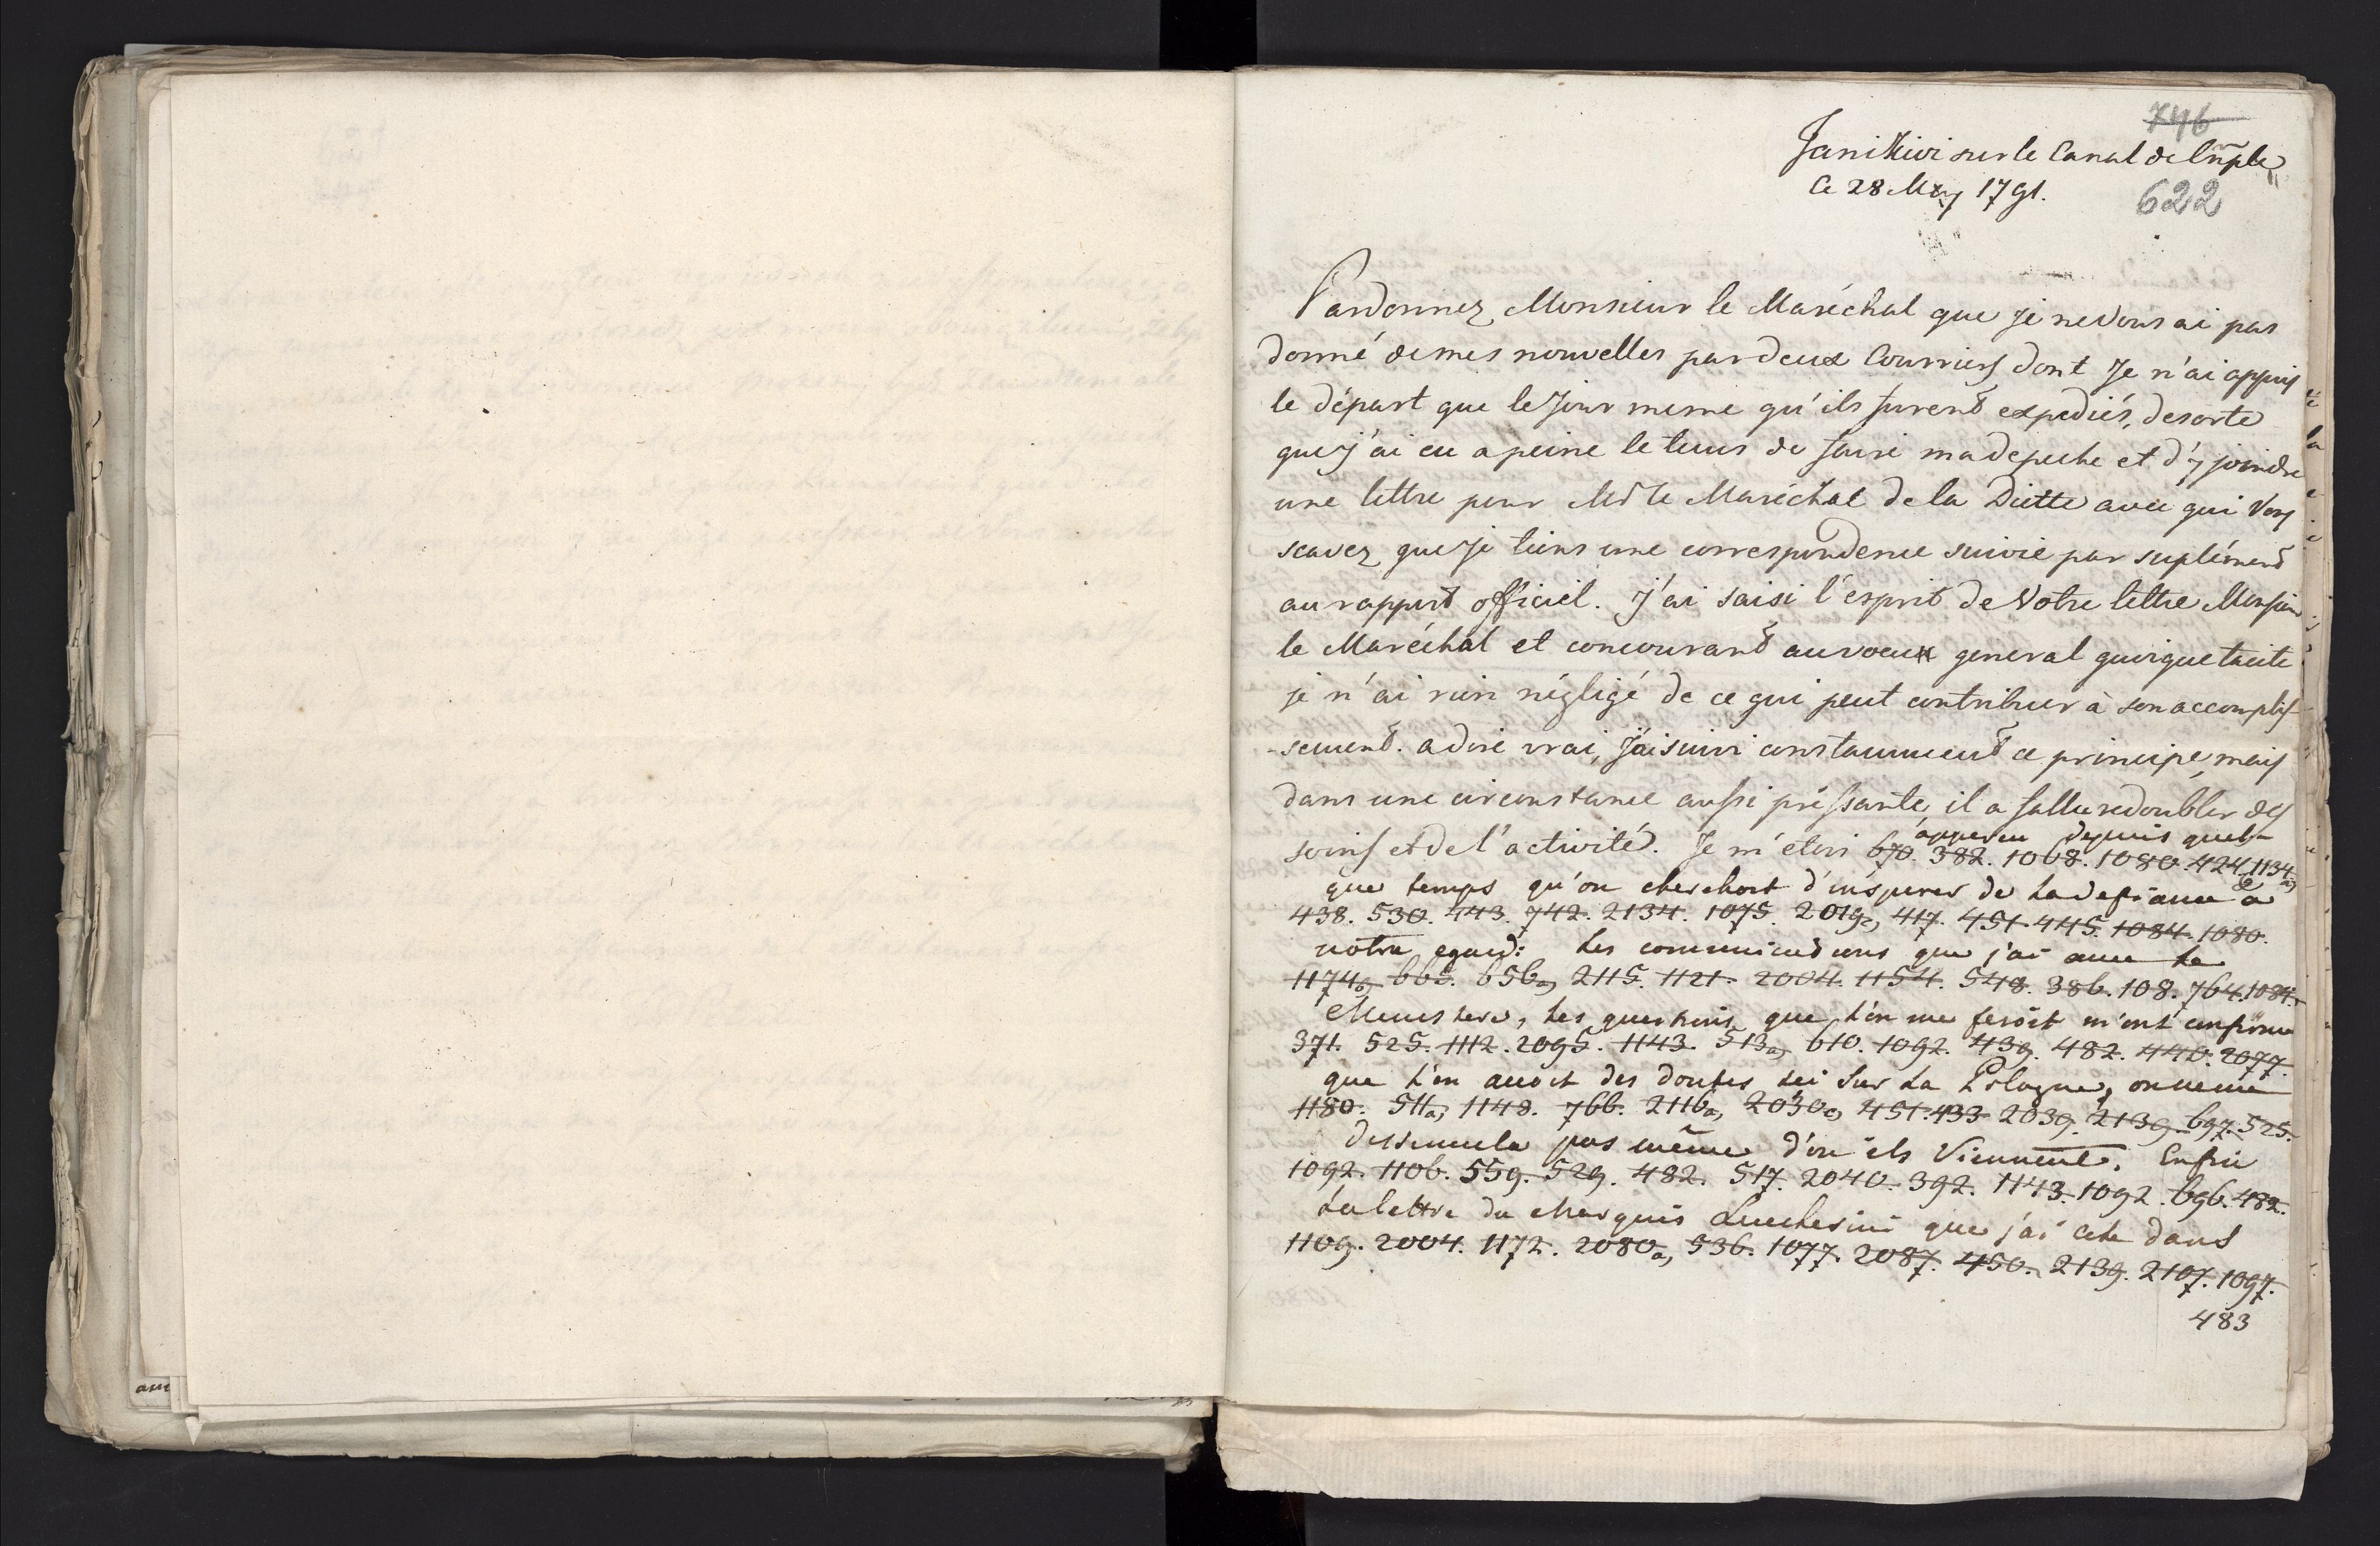 746
Janikivi sur le Canal de Cnple
Ce 28 May 1791.
622
Pardonnez Monsieur le Maréchal que je ne Vous ai pas
donné de mes nouvelles par deux Courriers dont Je n'ai appris
le départ que le jour meme qu'ils furent expediés, desorte
que j'ai eu a peine le tems de faire ma depeche et d'y joindre
une lettre pour Mr le Maréchal de la Diette avec qui Vous
scavez que je tiens une correspondence suivie par suplément
au rapport officiel. J'ai saisi l'esprit de Votre lettre Monsieur
le Maréchal et concourant au voeux general quoique tacite
je n'ai rien négligé de ce qui peut contribuer à son accomplis-
-sement. a dire vrai, j'ai suivi constamment ce principe, mais
dans une circonstance aussi pressante, il a fallu redoubler des
apperçu depuis quel-
soins et de l'activité. Je m'etois 670. 382. 1068. 1080. 424. 1134 a)
que temps qu'on cherchoit d'inspirer de la defiance a
438. 530. 443. 742. 2134. 1075. 2019 c) 417. 451. 445. 1084. 1080.
notre egard: les communications que j'ai avec le
1174 b) 665. 656 a) 2115. 1121. 2004. 1154. 548. 386. 108. 764. 1084.
Ministere, les questions que l'on me feroit m'ont confirmé
371. 525. 1112. 2095. 1143. 513 a) 610. 1092. 439. 482. 440. 2077.
que l'on avoit des doutes ici sur la Pologne, on ne me
1180. 511 a) 1148. 766. 2116 a) 2030 c) 451. 433. 2039. 2139. 697. 525.
dissimula pas même d'ou ils Viennent. Enfin
1092. 1106. 559. 529. 482. 517. 2040. 392. 1143. 1092. 696. 482.
la lettre du Marquis Lucchesini que j'ai cité dans
1109. 2004. 1172. 2080 a) 536. 1077. 2087. 450. 2139. 2107. 1097.
483
am